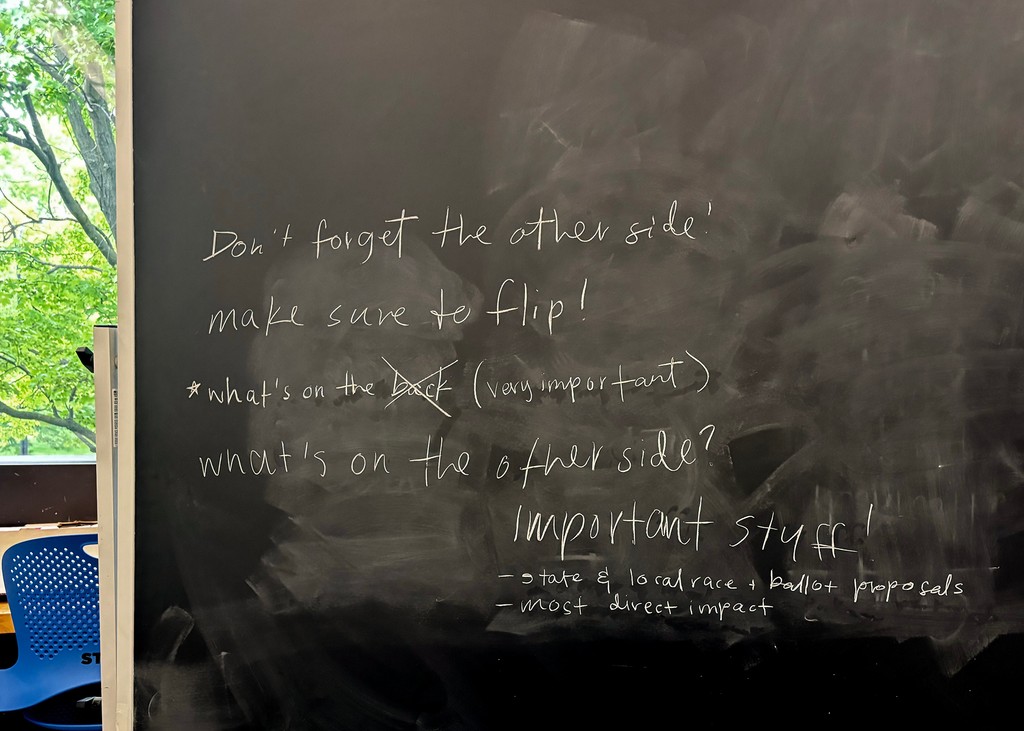 Don't forget the other side!
make sure to flip!
*what's on the back (very important)
what's on the other side?
important stuff!
- state & local race + ballot proposals
- most direct impact
ST